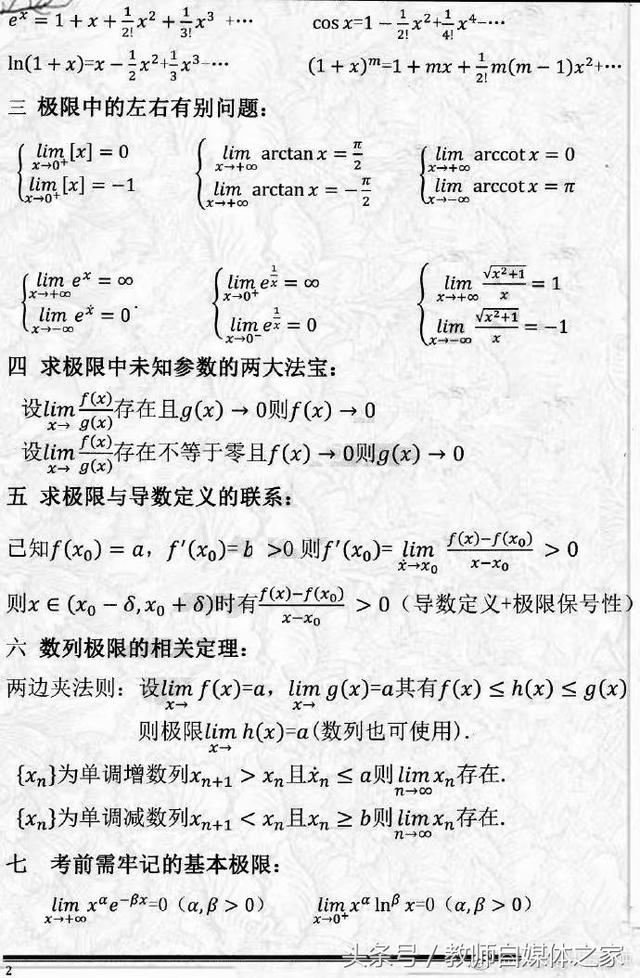 e^x = 1 + x + \frac{1}{2!}x^2 + \frac{1}{3!}x^3 + ⋯ cos x=1 − \frac{1}{2!}x^2+\frac{1}{4!}x^4−⋯
ln(1 + x)=x − \frac{1}{2}x^2+\frac{1}{3}x^3−⋯ (1 + x)^m=1 + mx + \frac{1}{2!}m(m − 1)x^2+⋯
三 极限中的左右有别问题：
\begin{cases} \lim_{x→0^+}[x] = 0 \\ \lim_{x→0^+}[x] = −1 \end{cases} \begin{cases} \lim_{x→+∞} arctan x = \frac{π}{2} \\ \lim_{x→+∞} arctan x = −\frac{π}{2} \end{cases} \begin{cases} \lim_{x→+∞} arccot x = 0 \\ \lim_{x→−∞} arccot x = π \end{cases}
\begin{cases} \lim_{x→+∞} e^x = ∞ \\ \lim_{x→−∞} e^x = 0 \end{cases} \begin{cases} \lim_{x→0^+} e^{\frac{1}{x}} = ∞ \\ \lim_{x→0^−} e^{\frac{1}{x}} = 0 \end{cases} \begin{cases} \lim_{x→+∞} \frac{\sqrt{x^2+1}}{x} = 1 \\ \lim_{x→−∞} \frac{\sqrt{x^2+1}}{x} = −1 \end{cases}
四 求极限中未知参数的两大法宝：
设\lim_{x→} \frac{f(x)}{g(x)}存在且g(x) → 0则f(x) → 0
设\lim_{x→} \frac{f(x)}{g(x)}存在不等于零且f(x) → 0则g(x) → 0
五 求极限与导数定义的联系：
已知f(x_0) = a，f′(x_0)= b >0 则f′(x_0)= \lim_{x→x_0} \frac{f(x)−f(x_0)}{x−x_0} > 0
则x ∈ (x_0 − δ, x_0 + δ)时有\frac{f(x)−f(x_0)}{x−x_0} > 0（导数定义+极限保号性）
六 数列极限的相关定理：
两边夹法则：设\lim_{x→} f(x)=a，\lim_{x→} g(x)=a其有f(x) ≤ h(x) ≤ g(x)
则极限\lim_{x→} h(x)=a(数列也可使用).
{x_n}为单调增数列x_{n+1} > x_n且x_n ≤ a则\lim_{n→∞} x_n存在.
{x_n}为单调减数列x_{n+1} < x_n且x_n ≥ b则\lim_{n→∞} x_n存在.
七 考前需牢记的基本极限：
\lim_{x→+∞} x^α e^{−βx}=0（α, β > 0） \lim_{x→0^+} x^α ln^β x=0（α, β > 0）
2
头条号/教师自媒体之家